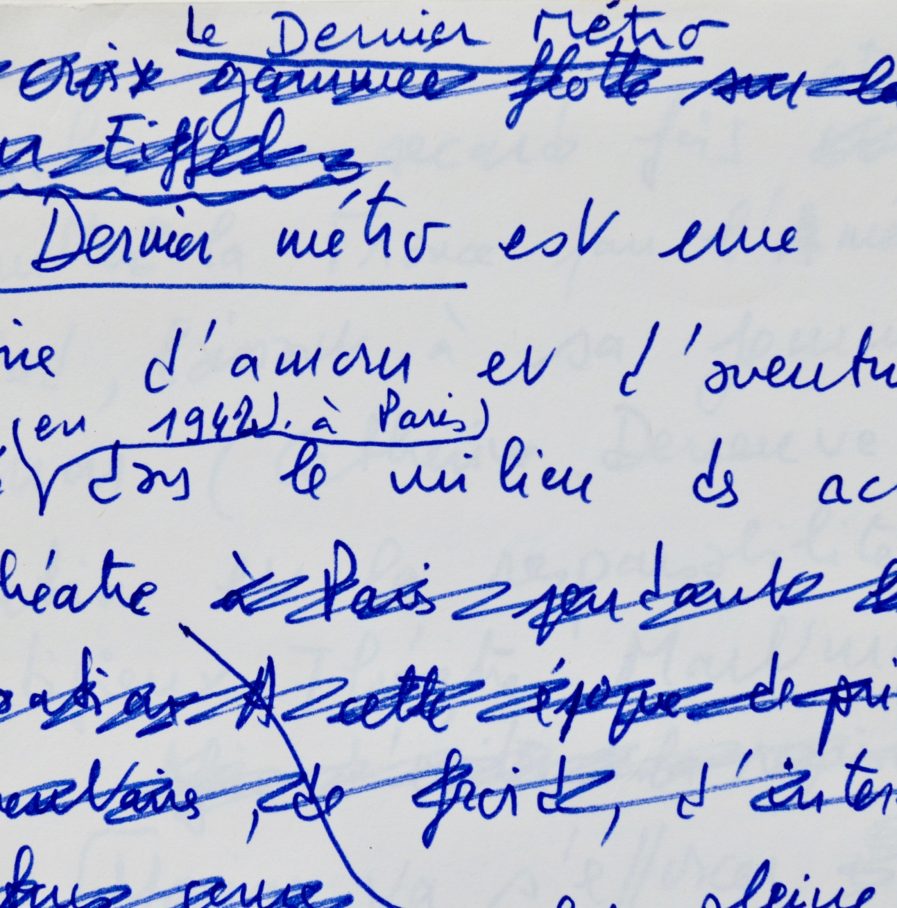 Le Dernier Métro
croix gammée flotte sur la
Eiffel
Dernier métro est une
d'amour et d'aventu
(en 1942 à Paris)
dans le milieu des ac
héatre à Paris pendant l
A cette époque de pri
, de froid, d'inter
pleine